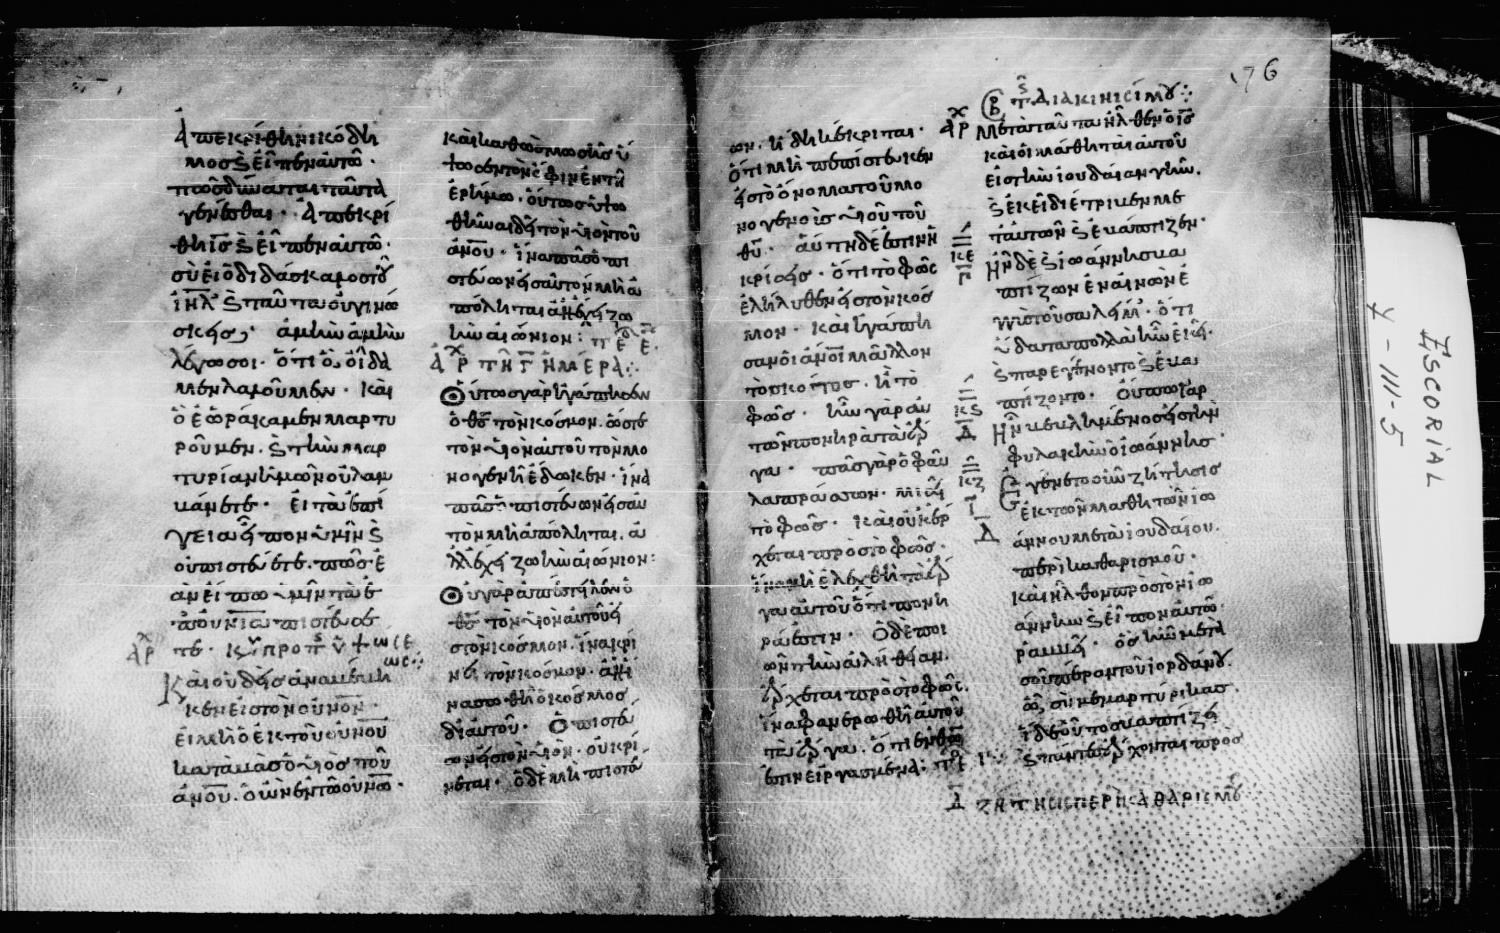 Ἀπεκρίθη νικόδη
μος ϗ εἶπεν αὐτῶ·
πῶς δύναται ταῦτα
γενέσθαι· Ἀπεκρί
θη ις ϗ εἶπεν αὐτῶ·
σὺ εἶ ὁ διδάσκαλος τοῦ
ιηλ ϗ ταῦτα οὐ γινώ
σκεις; ἀμὴν ἀμὴν
λέγω σοι· ὅτι ὃ οἴδα
μεν λαλοῦμεν· καὶ
ὃ ἑωράκαμεν μαρτυ
ροῦμεν· ϗ τὴν μαρ
τυρίαν ἡμῶν οὐ λαμ
βάνετε· εἰ τὰ ἐπί
γεια εἶπον ὑμῖν ϗ
οὐ πιστεύετε· πῶς ἐ
ὰν εἴπω ὑμῖν τὰ ἐ
πουνια πιστεύσε
τε·
Καὶ οὐδεὶς ἀναβέβη
κεν εἰς τὸν ουνον·
εἰ μὴ ὁ ἐκ τοῦ ουνου
καταβὰς ὁ υἱὸς τοῦ
ανου· ὁ ὢν ἐν τῶ ουνω·
καὶ καθὼς μωσῆς ὕ
ψωσεν τὸν ὄφιν ἐν τῆ
ἐρήμω· οὕτως ὑψω
θῆναι δεῖ τὸν υἱὸν τοῦ
ανου· ἵνα πᾶς ὁ πι
στεύων εἰς αὐτὸν μὴ ἀ
πόληται ἀλλ' ἔχη ζω
ὴν αἰώνιον:
ΑΡΧ ΤΗ Γ ΗΜΕΡΑ:
Οὕτως γὰρ ἠγάπησεν
ὁ θς τὸν κόσμον· ὥστε
τὸν υἱὸν αὐτοῦ τὸν μο
νογενῆ ἔδωκεν· ἵνα
πᾶς ὁ πιστεύων εἰς αὐ
τὸν μὴ ἀπόληται· ἀ
λλ' ἔχη ζωὴν αἰώνιον:
Οὐ γὰρ ἀπέστειλεν ὁ
θς τὸν υἱὸν αὐτοῦ εἰ
στὸν κόσμον· ἵνα κρί
νει τὸν κόσμον· ἀλλ' ἵ
να σωθῆ ὁ κόσμος
δι' αὐτοῦ· Ὁ πιστεύ
ων εἰς τὸν υἱὸν· οὐ κρί
νεται· ὁ δὲ μὴ πιστεύ
176
ων· ἤδη κέκριται·
ὅτι μὴ πεπίστευκεν
εἰς τὸ ὄνομα τοῦ μο
νογενοῖς υἱοῦ τοῦ
θυ· αὕτη δέ ἐστιν ἡ
κρίσις· ὅτι τὸ φῶς
ἐλήλυθεν εἰς τὸν κόσ
μον· καὶ ἠγάπη
σαν οἱ ανοι μᾶλλον
τὸ σκότος· ἢ τὸ
φῶς· ἦν γὰρ αὐ
τῶν πονηρὰ τὰ ἔρ
γα· πᾶς γὰρ ὁ φαῦ
λα πράσσων· μισεῖ
τὸ φῶς· καὶ οὐκ ἔρ
χεται πρὸς τὸ φῶς·
ἵνα μὴ ἐλεχθῆ τὰ ἔρ
γα αὐτοῦ ὅτι πονη
ρά ἐστιν· Ὁ δὲ ποι
ῶν τὴν ἀλήθειαν·
ἔρχεται πρὸς τὸ φῶς·
ἵνα φανερωθῆ αὐτοῦ
τὰ ἔργα· ὅτι ἐν θω
ἐστιν εἰργασμένα:
ΤΗΣ ΔΙΑΚΙΝΙΣΙΜΟΥ:
Μετὰ ταῦτα ἦλθεν ὁ ις
καὶ οἱ μαθηταὶ αὐτοῦ
εἰς τὴν ἰουδαίαν γῆν·
ϗ ἐκεῖ διέτριβεν με
τ' αὐτῶν ϗ ἐβάπτιζεν·
Ἦν δὲ ϗ ἰωάννης βα
πτίζων ἐν αἰνὼν ἐ
γγὺς τοῦ σαλήμ· ὅτι
ὕδατα πολλὰ ἦν ἐκεῖ·
ϗ παρεγένοντο ϗ ἐβα
πτίζοντο· Οὔπω γὰρ
ἦν βεβλημένος εἰς τὴν
φυλακὴν ὁ ἰωάννης·
Ἐγένετο οὖν ζήτησις
ἐκ τῶν μαθητῶν ἰω
άννου μετὰ ἰουδαίου·
περὶ καθαρισμοῦ·
καὶ ἦλθον πρὸς τὸν ἰω
άννην ϗ εἶπον αὐτῶ·
ραββεί· ὃς ἦν μετὰ
σοῦ πέραν τοῦ ἰορδάνου·
ὧ σὺ μεμαρτύρικας·
ἴδε οὗτος βαπτίζει
ϗ πάντες ἔρχονται πρὸς
Δ ΖΗΤΗΣΙΣ ΠΕΡΙ ΚΑΘΑΡΙΣΜΟΥ
ESCORIAL
Y-III-5